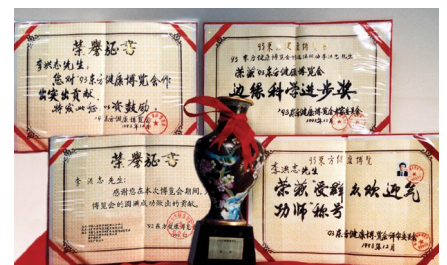 荣誉证书
李洪志先生：
您对'93东方健康博览会作
出突出贡献
特发此证以资鼓励。
'93东方健康博览会
1993年12月
93东方健康博览会
荣获'93东方健康博览会
边缘科学进步奖
'93东方健康博览会评审委员会
1993年12月
荣誉证书
李洪志先生：
感谢您在本次博览会期间，
博览会的圆满成功做出的贡献。
'93东方健康博览会
93东方健康博览
李洪志先生
荣获"受群众欢迎气
功师"称号
'93东方健康博览会评审委员会
1993年12月